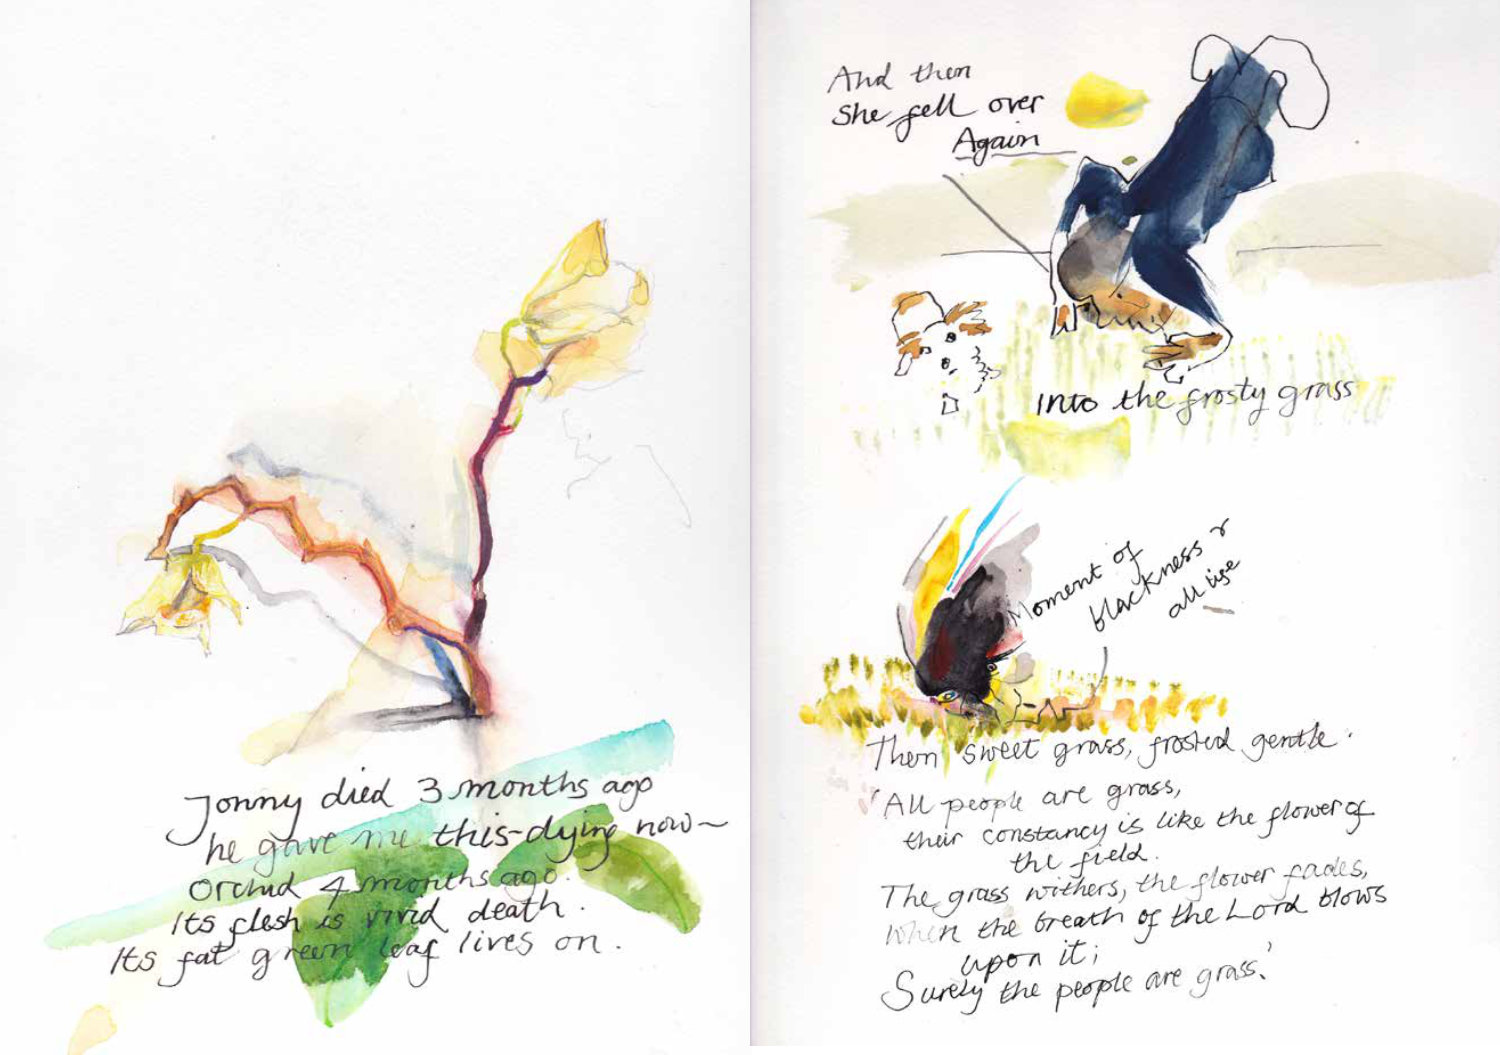 Jonny died 3 months ago
he gave me this-dying now~
Orchid 4 months ago.
Its flesh is vivid death.
Its fat green leaf lives on.
And then
She fell over
Again
into the frosty grass
Moment of
blackness &
all lise
Then sweet grass, frosted gentle.
'All people are grass,
their constancy is like the flower of
the field.
The grass withers, the flower fades,
when the breath of the Lord blows
upon it;
Surely the people are grass.'